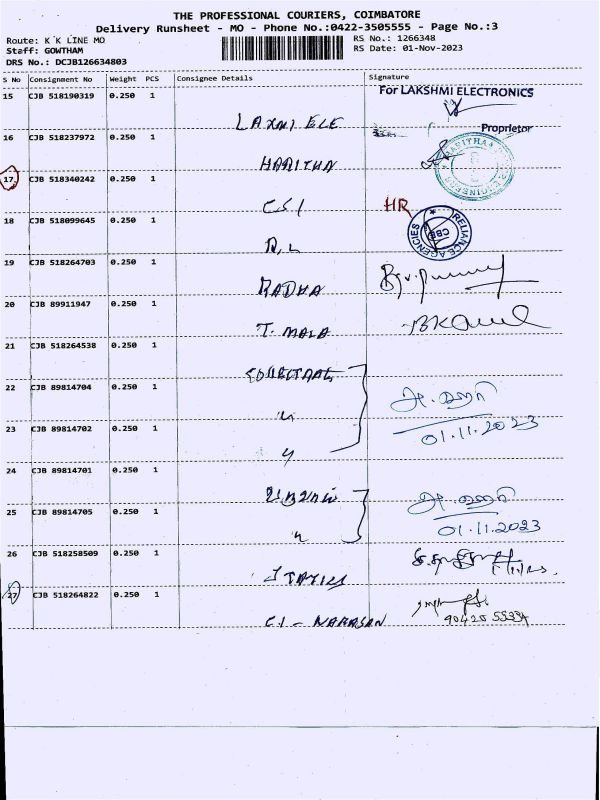 THE PROFESSIONAL COURIERS, COIMBATORE
Delivery Runsheet - MO - Phone No.:0422-3505555 - Page No.:3
Route: K K LINE MO RS No.: 1266348
Staff: GOWTHAM RS Date: 01-Nov-2023
DRS No.: DCJB126634803
S No Consignment No Weight PCS Consignee Details Signature
15 CJB 518190319 0.250 1 For LAKSHMI ELECTRONICS
LAXMI ELE Proprietor
16 CJB 518237972 0.250 1
HARITHA HARITHAA ENGINEERS
17 CJB 518340242 0.250 1
CSI HR
18 CJB 518099645 0.250 1
R.L RELIANCE AGENCIES CBE
19 CJB 518264703 0.250 1
RADHA
20 CJB 89911947 0.250 1
T. MALA
21 CJB 518264538 0.250 1
22 CJB 89814704 0.250 1
"
23 CJB 89814702 0.250 1 01.11.2023
"
24 CJB 89814701 0.250 1
25 CJB 89814705 0.250 1
" 01.11.2023
26 CJB 518258509 0.250 1
27 CJB 518264822 0.250 1
C1 - NARASAN